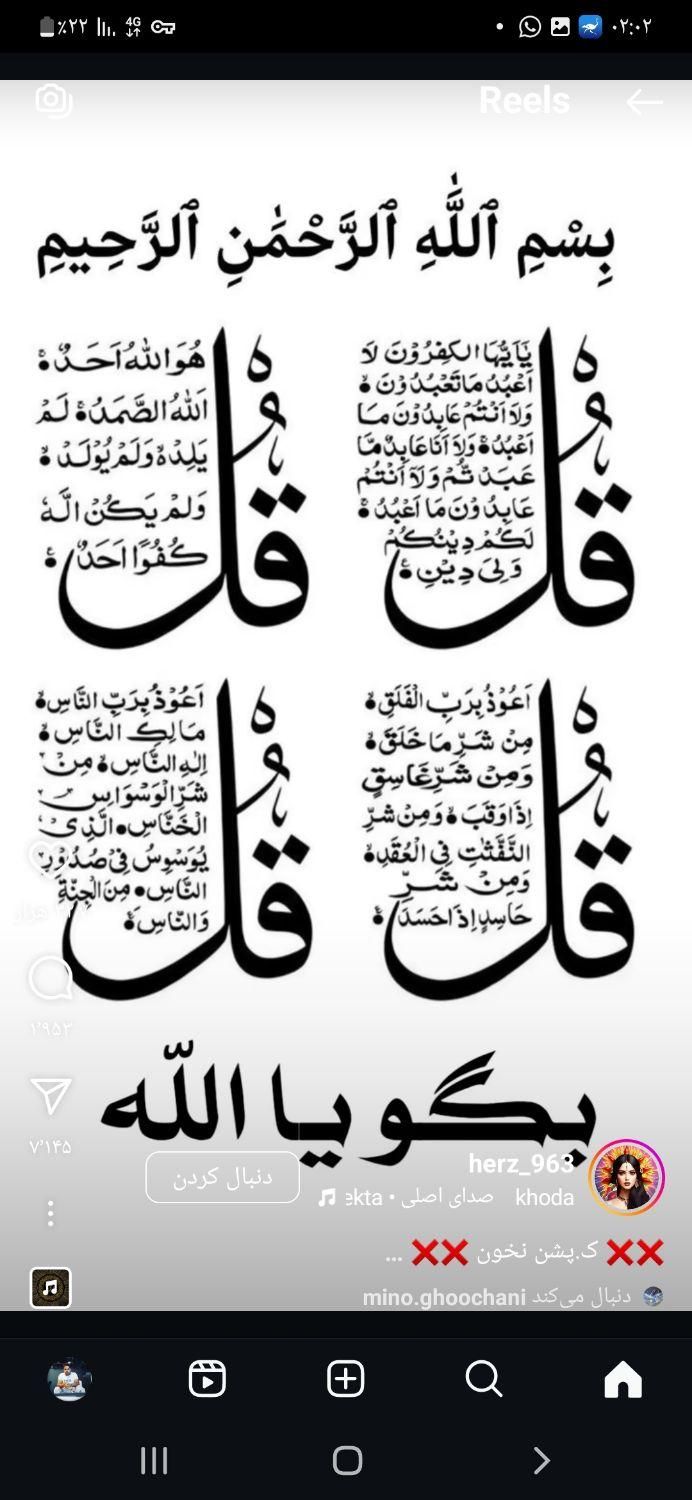 ٪۲۲ 4G ۰۲:۰۲
Reels
بِسْمِ ٱللَّٰهِ ٱلرَّحْمَٰنِ ٱلرَّحِيمِ
قُل
يَٰٓاَيُّهَا الكٰفِرُوْنَ لَا
اَعْبُدُ مَا تَعْبُدُوْنَ ۙ
وَلَا اَنْتُمْ عَابِدُوْنَ مَا
اَعْبُدُ ۚ وَلَا اَنَا عَابِدٌ مَّا
عَبَدْ تُّمْ وَلَا اَنْتُمْ
عَابِدُوْنَ مَا اَعْبُدُ ۚ
لَكُمْ دِيْنُكُمْ
وَلِيَ دِيْنِ
قُل
هُوَ اللهُ اَحَدٌ ۚ
اَللهُ الصَّمَدُ ۚ لَمْ
يَلِدْ ۙ وَلَمْ يُوْلَدْ ۙ
وَلَمْ يَكُنْ الَّهٗ
كُفُوًا اَحَدٌ
قُل
اَعُوْذُ بِرَبِّ الْفَلَقِ ۙ
مِنْ شَرِّ مَا خَلَقَ ۙ
وَمِنْ شَرِّ غَاسِقٍ
اِذَا وَقَبَ ۙ وَمِنْ شَرِّ
النَّفّٰثٰتِ فِي الْعُقَدِ ۙ
وَمِنْ شَرِّ
حَاسِدٍ اِذَا حَسَدَ
قُل
اَعُوْذُ بِرَبِّ النَّاسِ ۙ
مَالِكِ النَّاسِ ۙ
اِلٰهِ النَّاسِ ۙ مِنْ
شَرِّ الْوَسْوَاسِ
الْخَنَّاسِ ۙ الَّذِىْ
يُوَسْوِسُ فِىْ صُدُوْرِ
النَّاسِ ۙ مِنَ الْجِنَّةِ
وَالنَّاسِ
هزار
۱٬۹۵۳
۷٬۱۴۵
بگو یا الله
herz_963
دنبال کردن
khoda صدای اصلی • ekta
❌❌ ک.پشن نخون ❌❌ ...
دنبال می‌کند mino.ghoochani